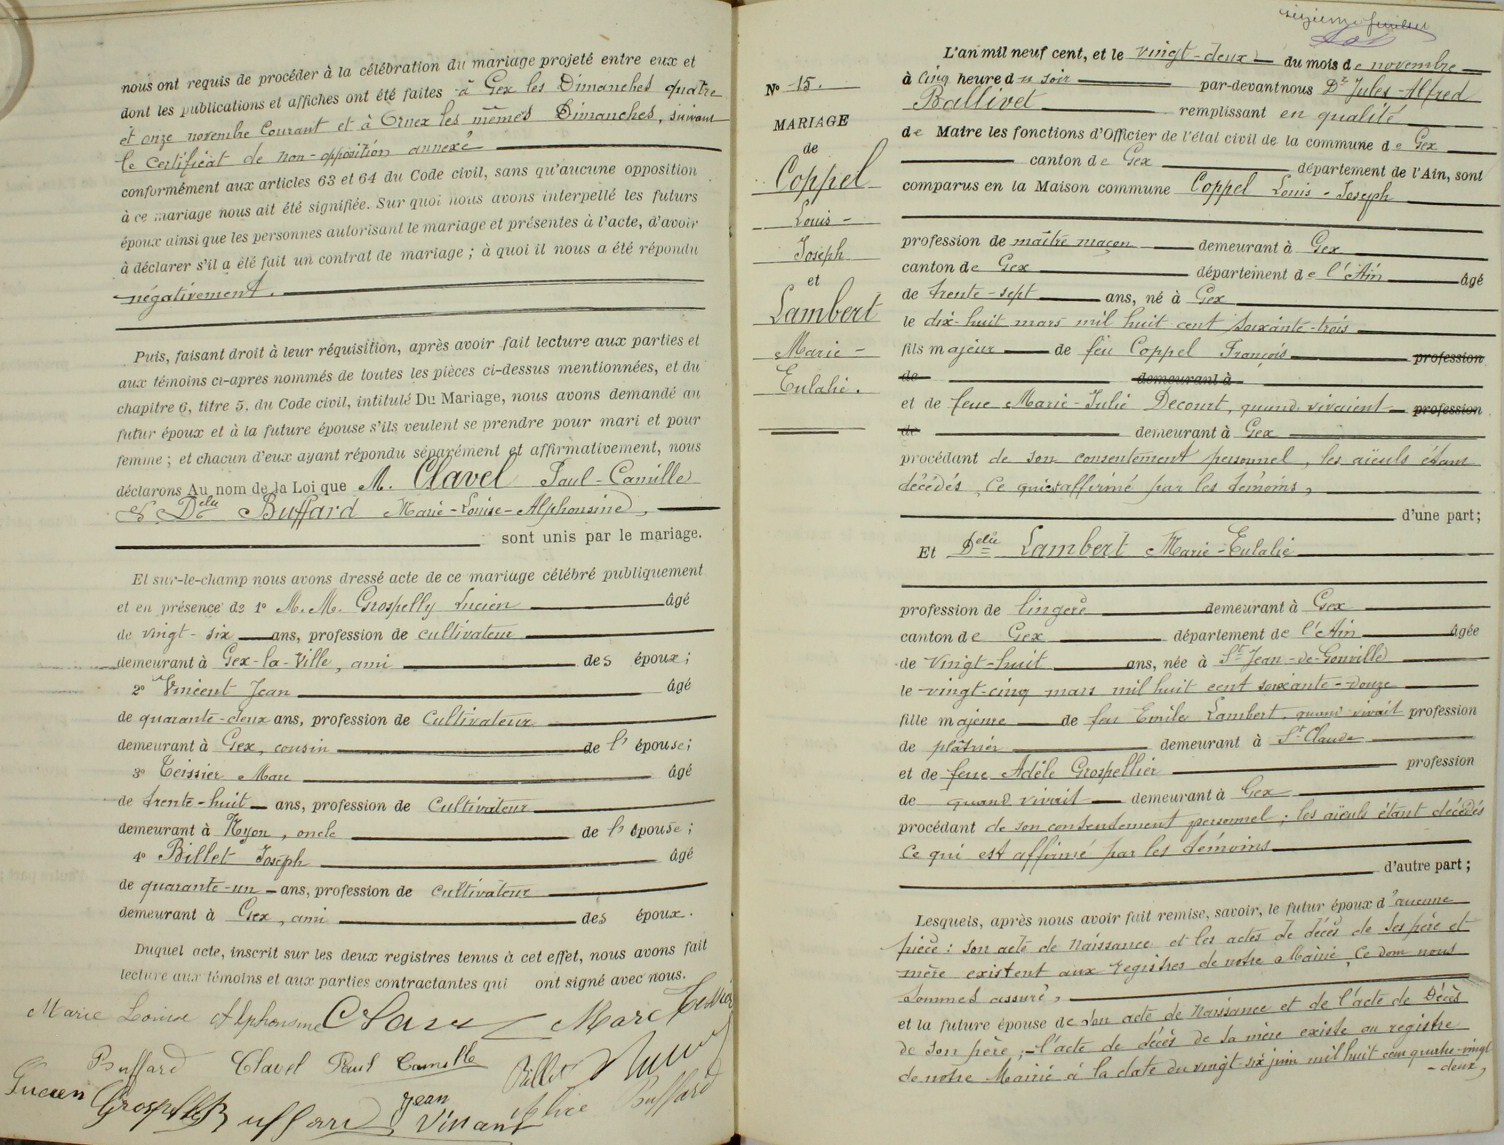 nous ont requis de procéder à la célébration du mariage projeté entre eux et
dont les publications et affiches ont été faites à Gex les Dimanches quatre
et onze novembre Courant et à Ornex les mêmes Dimanches, suivant
le Certificat de non-opposition annexé
conformément aux articles 63 et 64 du Code civil, sans qu'aucune opposition
à ce mariage nous ait été signifiée. Sur quoi nous avons interpellé les futurs
époux ainsi que les personnes autorisant le mariage et présentes à l'acte, d'avoir
à déclarer s'il a été fait un contrat de mariage ; à quoi il nous a été répondu
négativement.
Puis, faisant droit à leur réquisition, après avoir fait lecture aux parties et
aux témoins ci-après nommés de toutes les pièces ci-dessus mentionnées, et du
chapitre 6, titre 5. du Code civil, intitulé Du Mariage, nous avons demandé au
futur époux et à la future épouse s'ils veulent se prendre pour mari et pour
femme ; et chacun d'eux ayant répondu séparément et affirmativement, nous
déclarons Au nom de la Loi que M. Clavel Paul-Camille
et Delle Buffard Marie-Louise-Alphonsine,
sont unis par le mariage.
Et sur-le-champ nous avons dressé acte de ce mariage célébré publiquement
et en présence de 1º M.M. Grospelly Lucien âgé
de vingt-six ans, profession de cultivateur
demeurant à Gex-la-Ville, ami des époux ;
2º Vincent Jean âgé
de quarante-deux ans, profession de Cultivateur
demeurant à Gex, cousin de l' épouse ;
3º Teissier Marc âgé
de trente-huit ans, profession de Cultivateur
demeurant à Nyon, oncle de l' épouse ;
4º Billet Joseph âgé
de quarante-un ans, profession de cultivateur
demeurant à Gex, ami des époux.
Duquel acte, inscrit sur les deux registres tenus à cet effet, nous avons fait
lecture aux témoins et aux parties contractantes qui ont signé avec nous.
Marie Louise Alphonsine Clavel Marc
Buffard Clavel Paul Camille Billet
Lucien Grospelly Buffard Jean Vincent Alice Buffard
Nº 15.
MARIAGE
de
Coppel
Louis-
Joseph
et
Lambert
Marie-
Eulalie.
L'an mil neuf cent, et le vingt-deux du mois de novembre
à cinq heure du soir par-devant nous Dr Jules-Alfred
Ballivet remplissant en qualité
de Maire les fonctions d'Officier de l'état civil de la commune de Gex
canton de Gex département de l'Ain, sont
comparus en la Maison commune Coppel Louis-Joseph
profession de maître maçon demeurant à Gex
canton de Gex département de l'Ain âgé
de trente-sept ans, né à Gex
le dix-huit mars mil huit cent soixante-trois
fils majeur de feu Coppel François profession
de demeurant à
et de feue Marie-Julie Decourt, quand vivaient profession
de demeurant à Gex
procédant de son consentement personnel, les aïeuls étant
décédés, Ce qui est affirmé par les témoins,
d'une part ;
Et Delle Lambert Marie-Eulalie
profession de lingère demeurant à Gex
canton de Gex département de l'Ain âgée
de vingt-huit ans, née à St Jean-de-Gonville
le vingt-cinq mars mil huit cent soixante-douze
fille majeure de feu Emile Lambert, quand vivait profession
de plâtrier demeurant à St Claude
et de feue Adèle Grospellier profession
de quand vivait demeurant à Gex
procédant de son consentement personnel ; les aïeuls étant décédés
Ce qui est affirmé par les témoins
d'autre part ;
Lesquels, après nous avoir fait remise, savoir, le futur époux d'aucune
pièce : son acte de Naissance et les actes de décès de ses père et
mère existent aux registres de notre Mairie, Ce dont nous
sommes assuré,
et la future épouse de son acte de Naissance et de l'acte de Décès
de son père ; l'acte de décès de sa mère existe au registre
de notre Mairie à la date du vingt-six juin mil huit cent quatre-vingt
-deux,